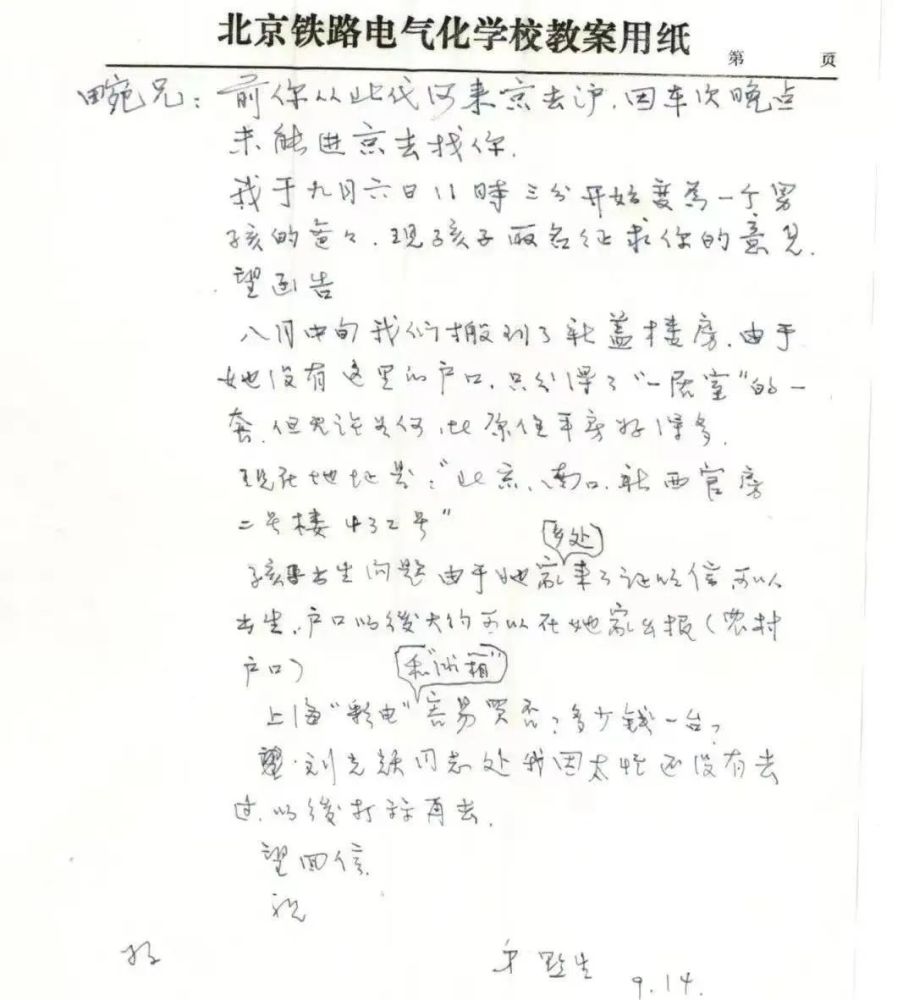 北京铁路电气化学校教案用纸
第 页
田宛兄：前你从北代河来京去沪，因车次晚点
未能进京去找你.
我于九月六日11時三分开始变為一个男
孩的爸々，现孩子取名征求你的意见.
望函告
八月中旬我们搬到了新盖楼房，由于
她没有这里的户口，只分得了“一居室”的一
套，但无论为何，比原住平房好得多.
现在地址是：“北京、南口、新西官房
二号楼432号”
乡处
孩子出生问题由于她家来了证明信可以
出生，户口以後大约可以在她家乡报（农村
户口）
和“冰箱”
上海“彩电”容易买否？多少钱一台？
望.刘同志处我因太忙还没有去
过.以後打算再去.
望回信
祝
好
弟 生
9.14.